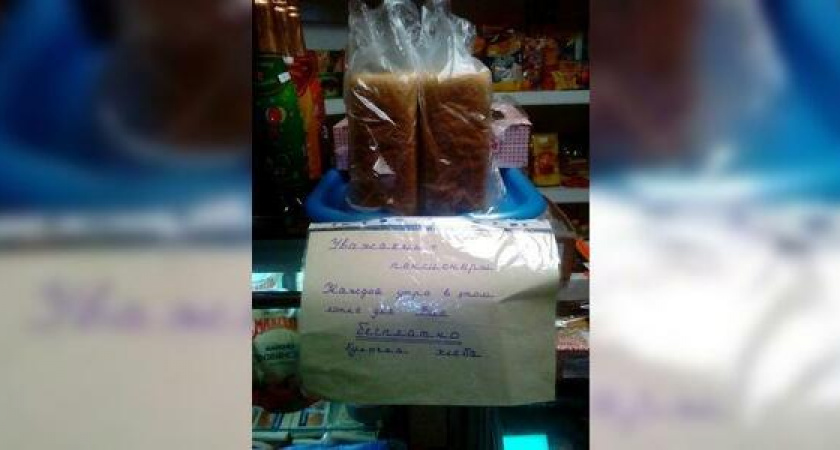 Уважаемые
пенсионеры
Каждое утро в этом
лотке для Вас
бесплатно
булочка хлеба
МАХЕЕВЪ